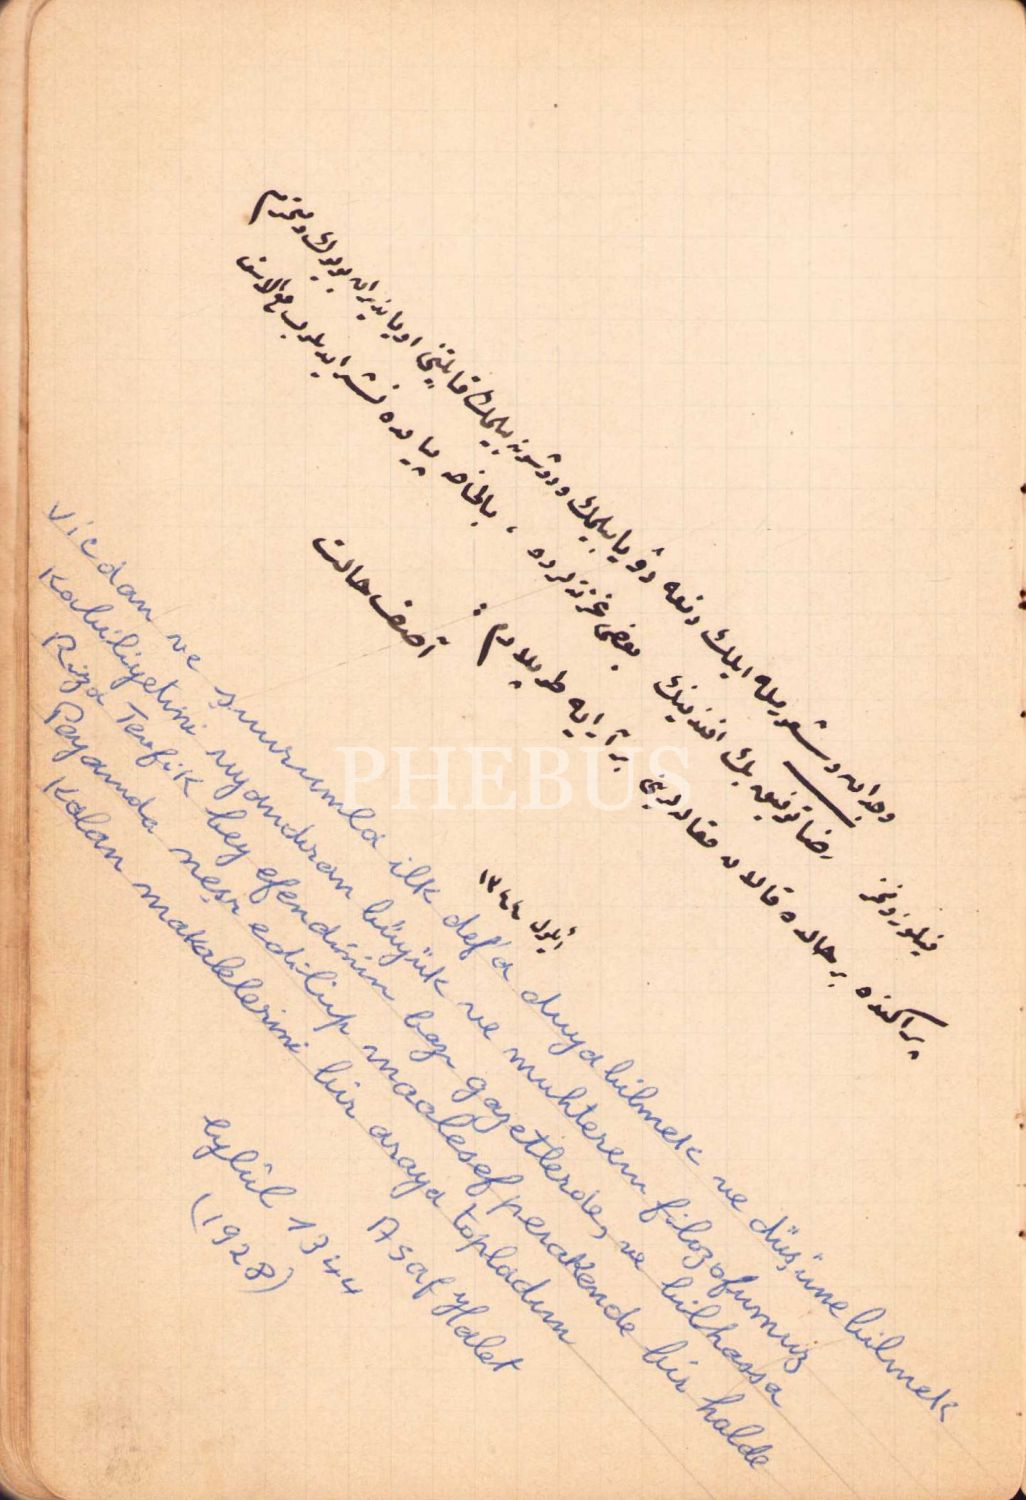 وجدان و شعورمله ايلك دفعه دويابيلمك و دوشونه بيلمك قابليتنى اوياندیران بويوك و محترم
فيلوزوفمز رضا توفيق بك افندينك بعضى غزته لرده ، بالخاصه پيامده نشر ايديلوب مع الاسف
پراكنده بر حالده قالان مقاله لرينى بر آرايه طوپلادم :
آصف حالت
ايلول ١٣٤٤
Vicdan ve şuurumla ilk def'a duyabilmek ve düşünebilmek
Kabiliyetini uyandıran büyük ve muhterem filozofumuz
Rıza Tevfik bey efendinin bazı gazetlerde, ve bilhassa
Peyamda neşr edilüp maalesef perakende bir halde
Kalan makalelerini bir araya topladım
Asaf Halet
Eylûl 1344
(1928)
PHEBUS